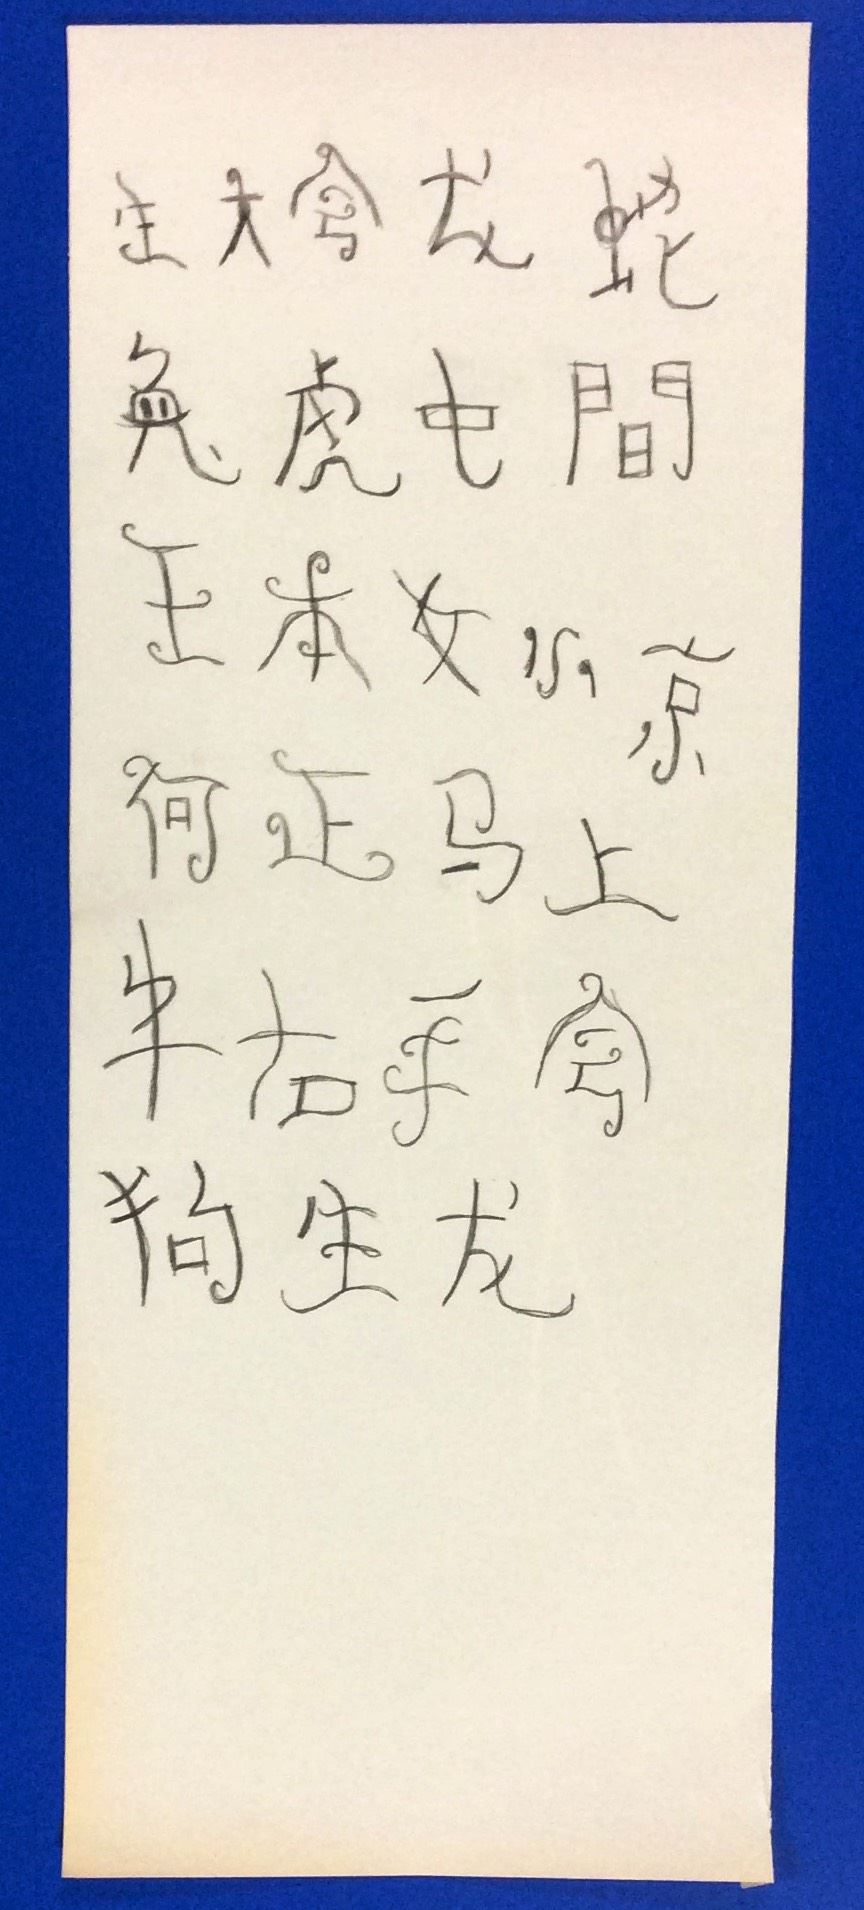 生大会龙蛇
兔虎电間
王本女小京
何正马上
牛右手会
狗生龙